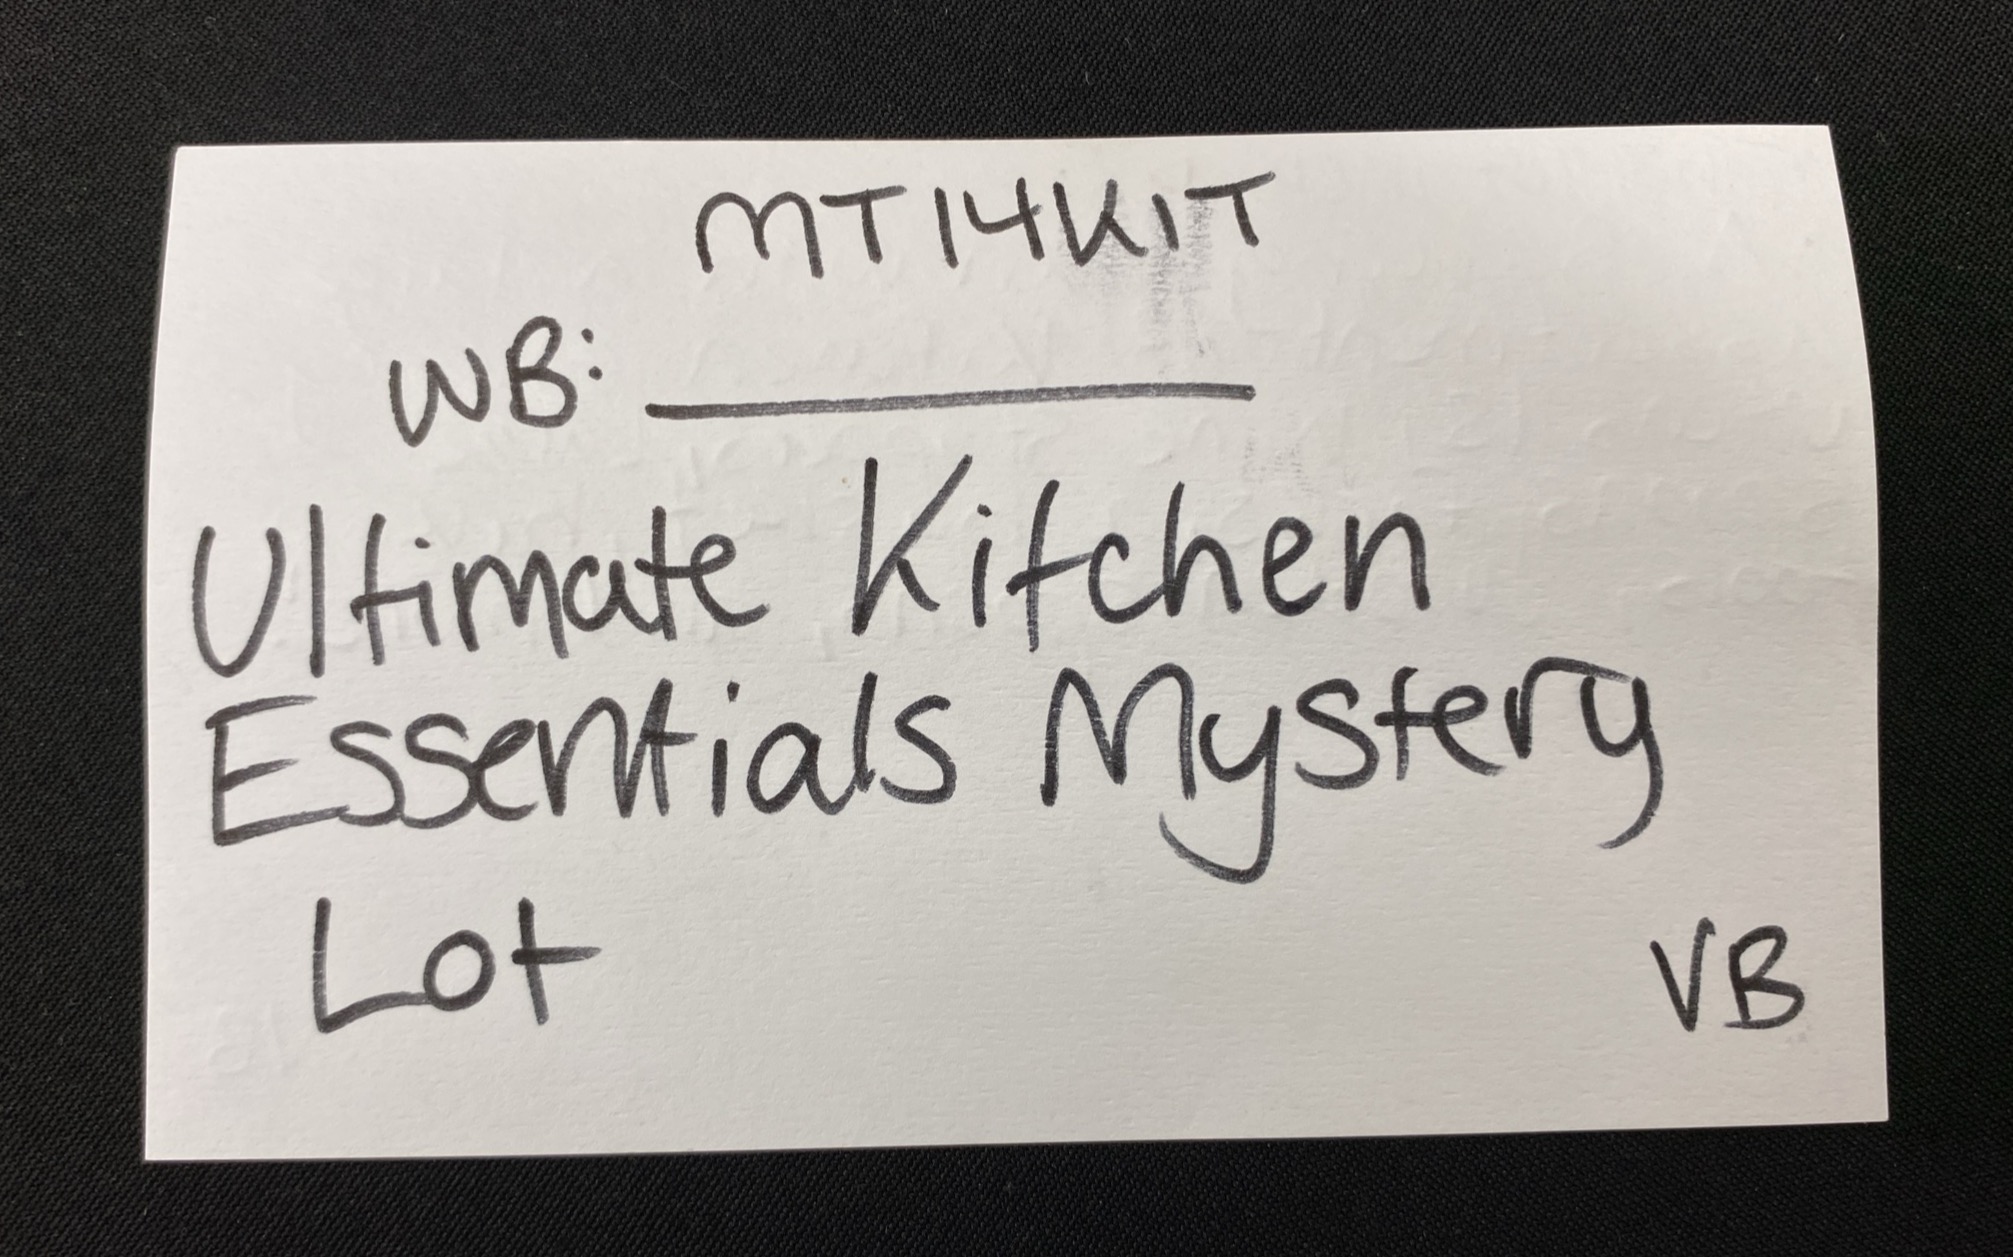 MT14KIT
WB: ____________
Ultimate Kitchen
Essentials Mystery
Lot
VB